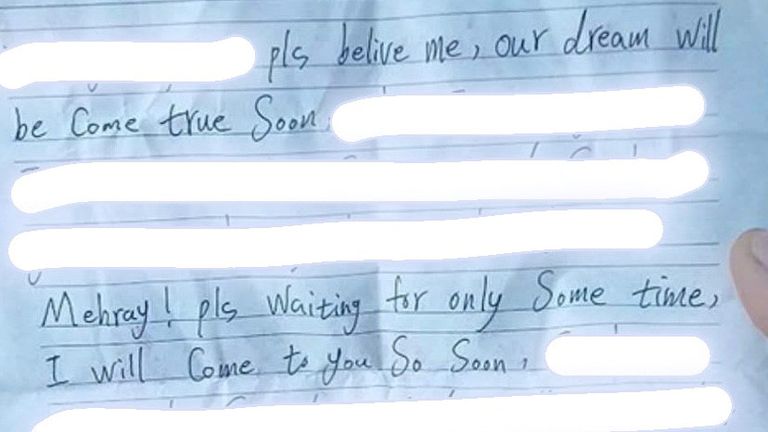 pls belive me, our dream will
be Come true Soon.
Mehray! pls Waiting for only Some time,
I will Come to you So Soon,